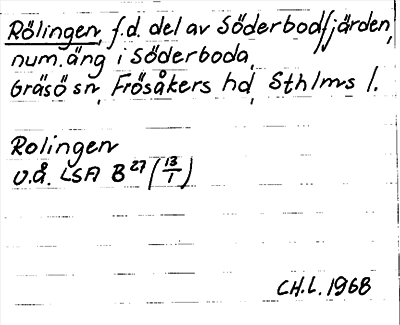 Rölingen, f.d. del av Söderbodfjärden,
num. äng i Söderboda,
Gräsö sn, Frösåkers hd, Sthlms l.
Rolingen
U.å. LSA B 27 (13/1)
CH.L. 1968